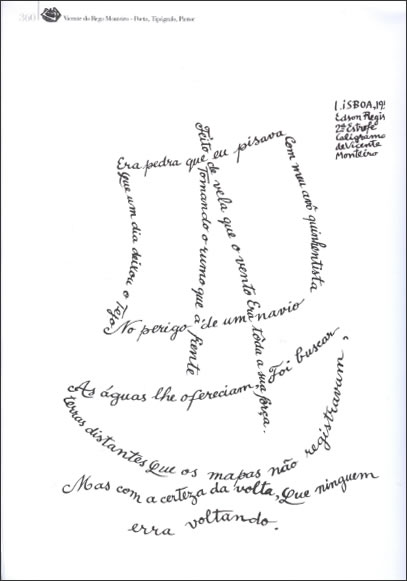 360 Vicente do Rego Monteiro - Poeta, Tipógrafo, Pintor
LiSBOA,19
Edson Regis
2ª Estrofe
Caligrama
de Vicente
Monteiro
Era pedra que eu pisava
Com meu avô quinhentista
Que um dia deixou o Tejo
No perigo de um navio
Feito de vela que o vento Era tôda a sua força.
Tomando o rumo que à frente
As águas lhe ofereciam, Foi buscar
terras distantes Que os mapas não registravam,
Mas com a certeza da volta, Que ninguem
erra voltando.